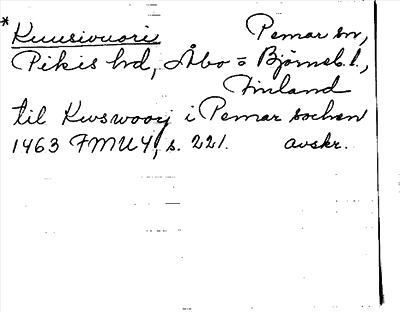 * Kuusivuori Pemar sn,
Pikis hd, Åbo = Björneb. l.,
Finland
til Kwswoorj i Pemar sochen
1463 FMU 4, s. 221. avskr.